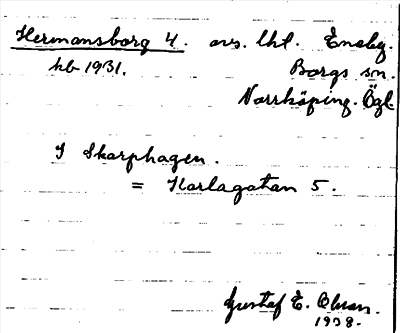 Hermansborg 4. avs. lht. Eneby.
hb 1931. Borgs sn.
Norrköping. Ögl
I Skarphagen.
= Karlagatan 5.
Gustaf E. Olsson.
1938.